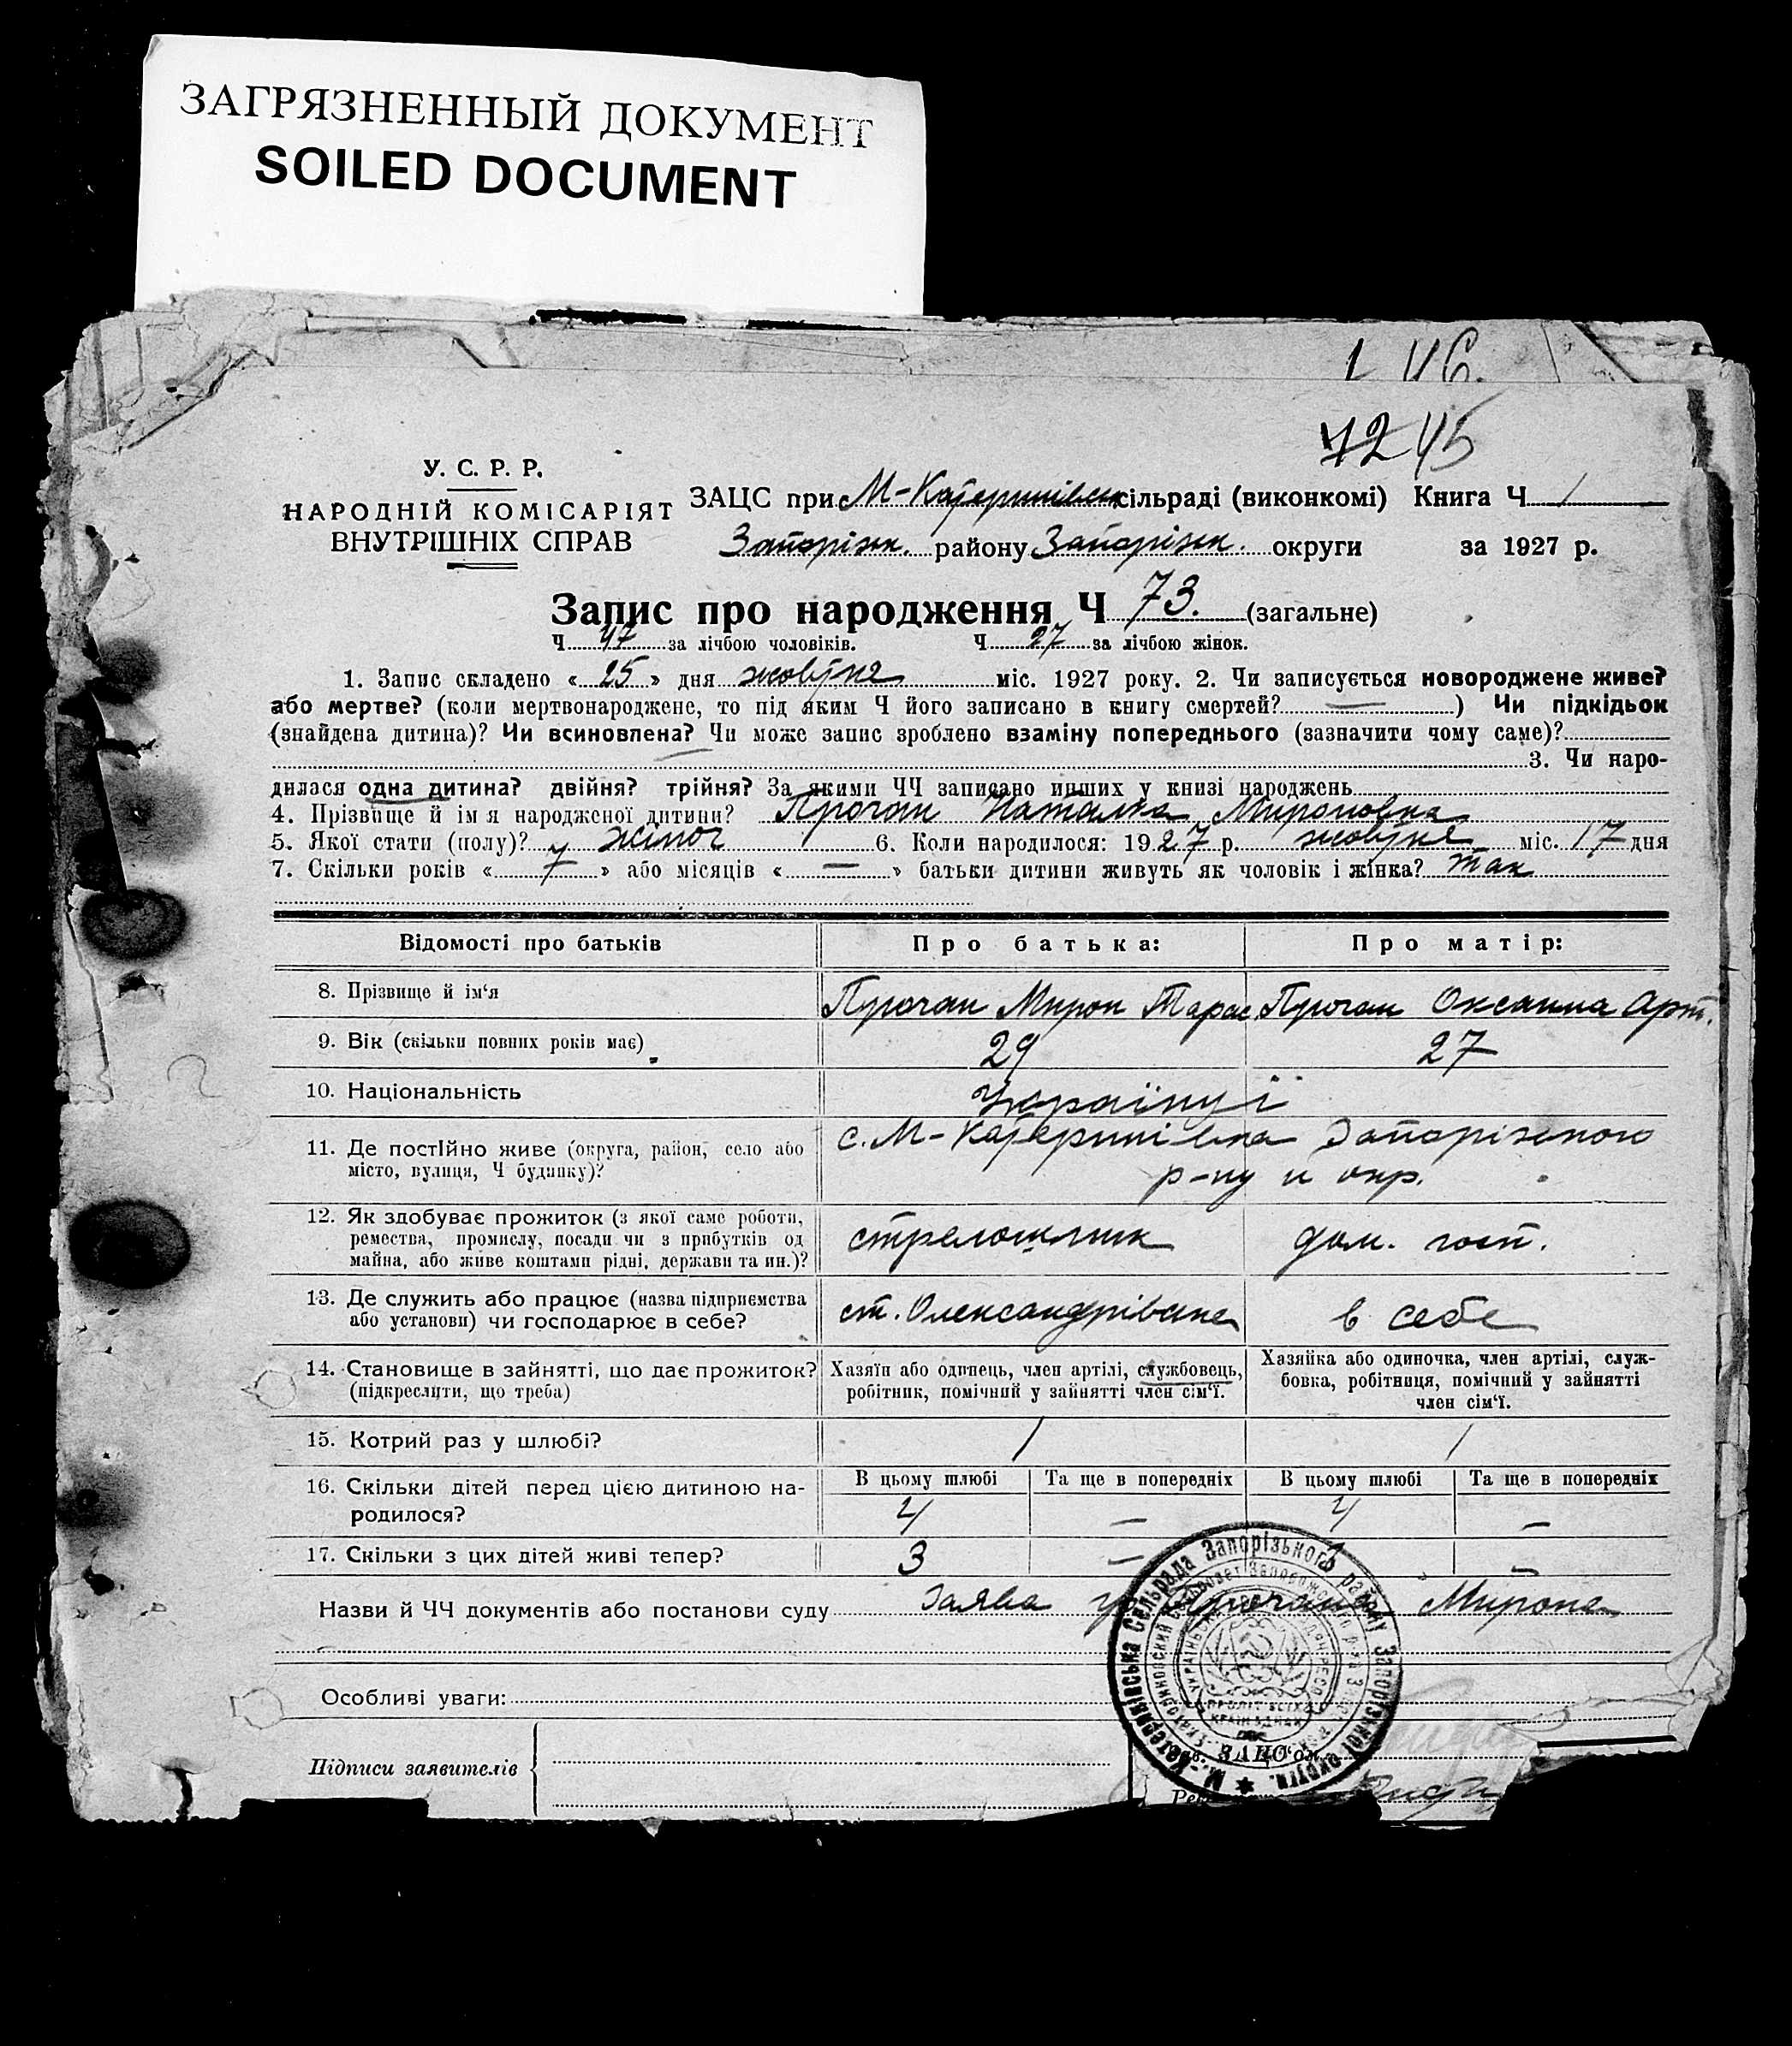 ЗАГРЯЗНЕННЫЙ ДОКУМЕНТ
SOILED DOCUMENT
72 45
У. С. Р. Р.
НАРОДНІЙ КОМІСАРІЯТ
ВНУТРІШНІХ СПРАВ
ЗАЦС при М-Катеринівськ сільраді (виконкомі) Книга Ч 1
Запорізьк. району Запорізьк. округи за 1927 р.
Запис про народження Ч 73. (загальне)
Ч 47 за лічбою чоловіків. Ч 27 за лічбою жінок.
1. Запис складено « 25 » дня жовтня міс. 1927 року. 2. Чи записується новороджене живе?
або мертве? (коли мертвонароджене, то під яким Ч його записано в книгу смертей? — ) Чи підкідьок
(знайдена дитина)? Чи всиновлена? Чи може запис зроблено взаміну попереднього (зазначити чому саме)?
— 3. Чи наро-
дилася одна дитина? двійня? трійня? За якими ЧЧ записано инших у книзі народжень
4. Прізвище й ім я народженої дитини? Наталка Мироновна
5. Якої стати (полу)? жіноч 6. Коли народилося: 1927 р. жовтня міс. 17 дня
7. Скільки років « 7 » або місяців « — » батьки дитини живуть як чоловік і жінка? так
Відомості про батьків Про батька: Про матір:
8. Прізвище й ім‘я Мирон Тарас. Оксанна Арт.
9. Вік (скільки повних років має) 29 27
10. Національність Українці
11. Де постійно живе (округа, район, село або с. М-Катеринівка Запорізького
місто, вулиця, Ч будинку)? р-ну и окр.
12. Як здобуває прожиток (з якої саме роботи,
ремества, промислу, посади чи з прибутків од стрелошник дом. госп.
майна, або живе коштами рідні, держави та ин.)?
13. Де служить або працює (назва підприємства ст. Олександрівське в себе
або установи) чи господарює в себе?
14. Становище в зайнятті, що дає прожиток? Хазяїн або одинець, член артілі, службовець, Хазяйка або одиночка, член артілі, служ-
(підкреслити, що треба) робітник, помічний у зайнятті член сім‘ї. бовка, робітниця, помічний у зайнятті
член сім‘ї.
15. Котрий раз у шлюбі? 1 1
16. Скільки дітей перед цією дитиною на- В цьому шлюбі Та ще в попередніх В цьому шлюбі Та ще в попередніх
родилося? 4 — 4 —
17. Скільки з цих дітей живі тепер? 3 — —
Назви й ЧЧ документів або постанови суду Заява Мирона
Особливі уваги:
Підписи заявителів
М.-Катеринівська Сельрада Запорізького району Запорізької округи.
ЗАЦС‘ом